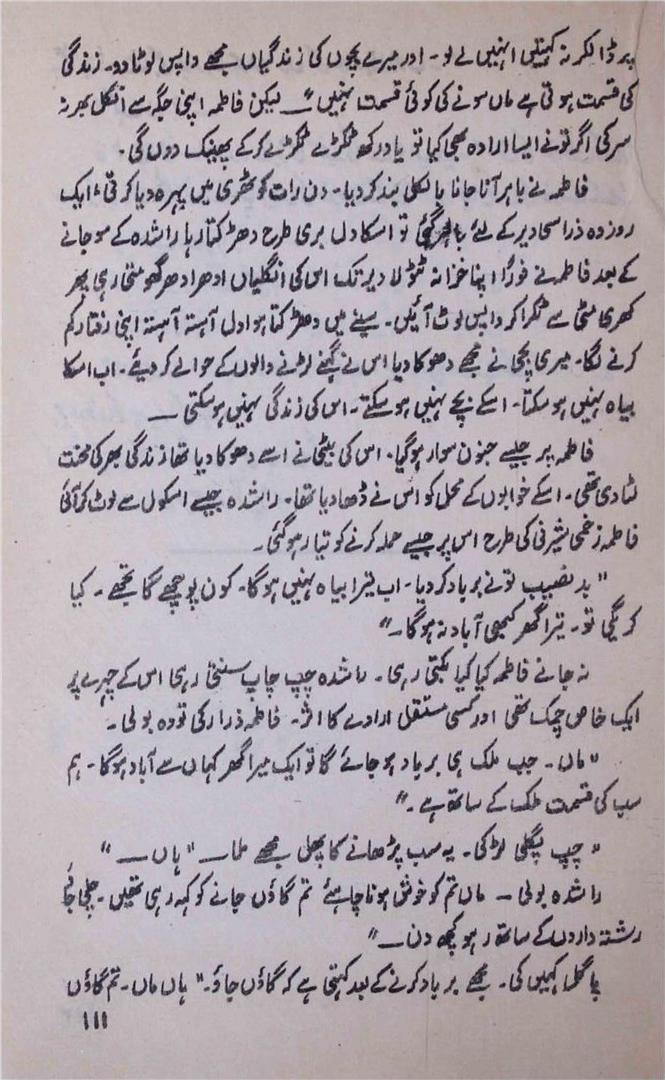 پر ڈالکر نہ کہتیں انہیں لے لو۔ اور میرے بچوں کی زندگیاں مجھے واپس لوٹا دو۔ زندگی
کی قسمت ہوتی ہے ماں سونے کی کوئی قسمت نہیں"۔ لیکن فاطمہ اپنی جگہ سے انگل بھر نہ
سرکی اگر تونے ایسا ارادہ بھی کیا تو یاد رکھ ٹکڑے ٹکڑے کر کے پھینک دوں گی۔
فاطمہ نے باہر آنا جانا بالکل بند کر دیا۔ دن رات کوٹھری میں پہرہ دیا کرتی، ایک
روز وہ ذرا سی دیر کے لئے باہر گئی تو اسکا دل بری طرح دھڑکتا رہا راشدہ کے سو جانے
کے بعد فاطمہ نے فوراً اپنا خزانہ ٹٹولا دیر تک اس کی انگلیاں ادھر ادھر گھومتی رہی پھر
کھری مٹی سے ٹکرا کر واپس لوٹ آئیں۔ سینے میں دھڑکتا ہوا دل آہستہ آہستہ اپنی رفتار کم
کرنے لگا۔ میری بچی نے مجھے دھوکا دیا اس نے گہنے لڑنے والوں کے حوالے کر دیئے۔ اب اسکا
بیاہ نہیں ہو سکتا۔ اسکے بچے نہیں ہو سکتے۔ اس کی زندگی نہیں ہو سکتی ــــ
فاطمہ پر جیسے جنون سوار ہو گیا۔ اس کی بیٹی نے اسے دھوکا دیا تھا زندگی بھر کی محنت
لٹا دی تھی۔ اسکے خوابوں کے محل کو اس نے ڈھا دیا تھا۔ راشدہ جیسے اسکول سے لوٹ کر آئی
فاطمہ زخمی شیرنی کی طرح اس پر جیسے حملہ کرنے کو تیار ہو گئی۔
"بدنصیب تونے برباد کر دیا۔ اب تیرا بیاہ نہیں ہوگا۔ کون پوچھے گا تجھے۔ کیا
کریگی تو۔ تیرا گھر کبھی آباد نہ ہوگا۔"
نہ جانے فاطمہ کیا کیا بکتی رہی۔ راشدہ چپ چاپ سنتی رہی اس کے چہرے پر
ایک خاص چمک تھی اور کسی مستقل ارادے کا اثر۔ فاطمہ ذرا رکی تو وہ بولی۔
"ماں۔ جب ملک ہی برباد ہو جائے گا تو ایک میرا گھر کہاں سے آباد ہوگا۔ ہم
سب کی قسمت ملک کے ساتھ ہے۔"
"چپ پگلی لڑکی۔ یہ سب پڑھانے کا پھل مجھے ملا ــــ "ہاں ــــ"
راشدہ بولی ــ ماں تم کو خوش ہونا چاہئے تم گاؤں جانے کو کہہ رہی تھیں۔ چلی جائے
رشتہ داروں کے ساتھ رہو کچھ دن ــ"
پاگل کہیں کی۔ مجھے برباد کرنے کے بعد کہتی ہے کہ گاؤں جاؤ۔" ہاں ماں۔ تم گاؤں
۱۱۱